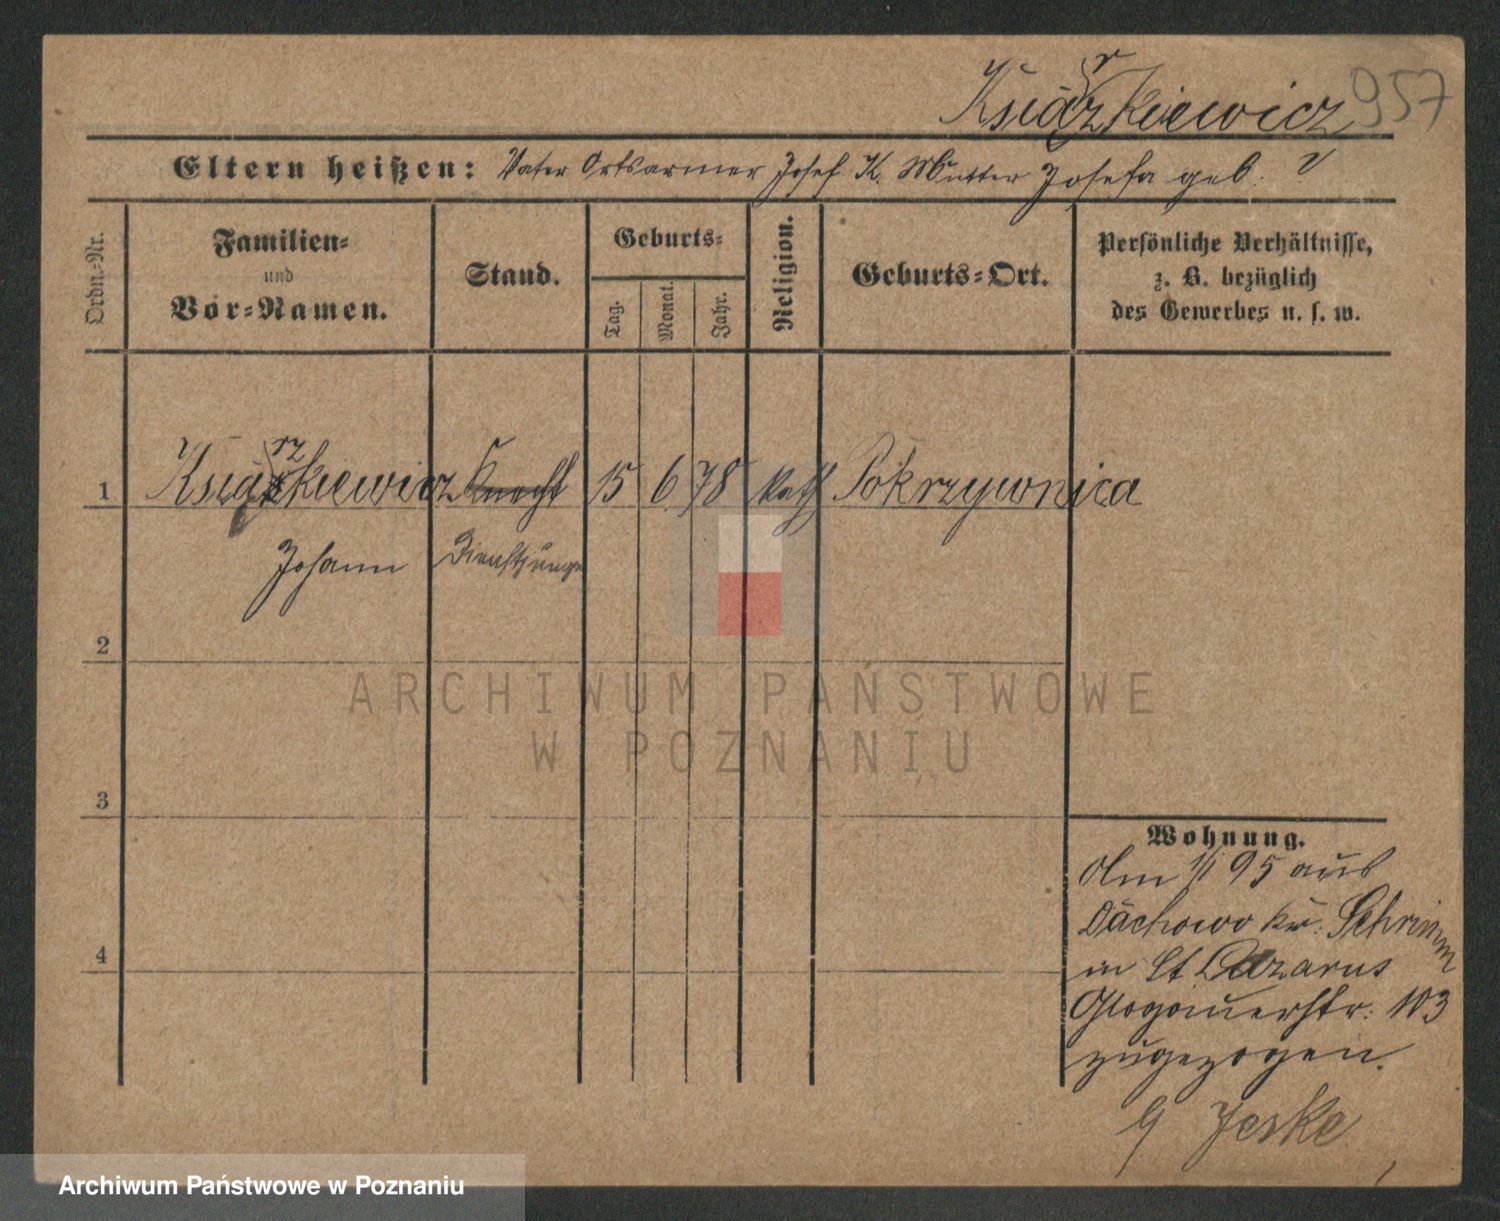 Ksiązkiewicz 957
r
Eltern heißen: Vater Ortsarmer Josef K. Mutter Josefa geb. ?
Ordn.-Nr.
Familien-
und
Vor-Namen.
Stand.
Geburts-
Tag.
Monat.
Jahr.
Religion.
Geburts-Ort.
Persönliche Verhältnisse,
z. B. bezüglich
des Gewerbes u. s. w.
rz
1 Ksiązkiewicz Knecht 15 6 78 kath Pokrzywnica
Johann Dienstjunge
2
3
4
Wohnung.
Am 1/1 95 aus
Dachowo Kr. Schrimm
in St. Lazarus
Glogauerstr. 103
zugezogen.
G Jeske
ARCHIWUM PAŃSTWOWE
W POZNANIU
Archiwum Państwowe w Poznaniu